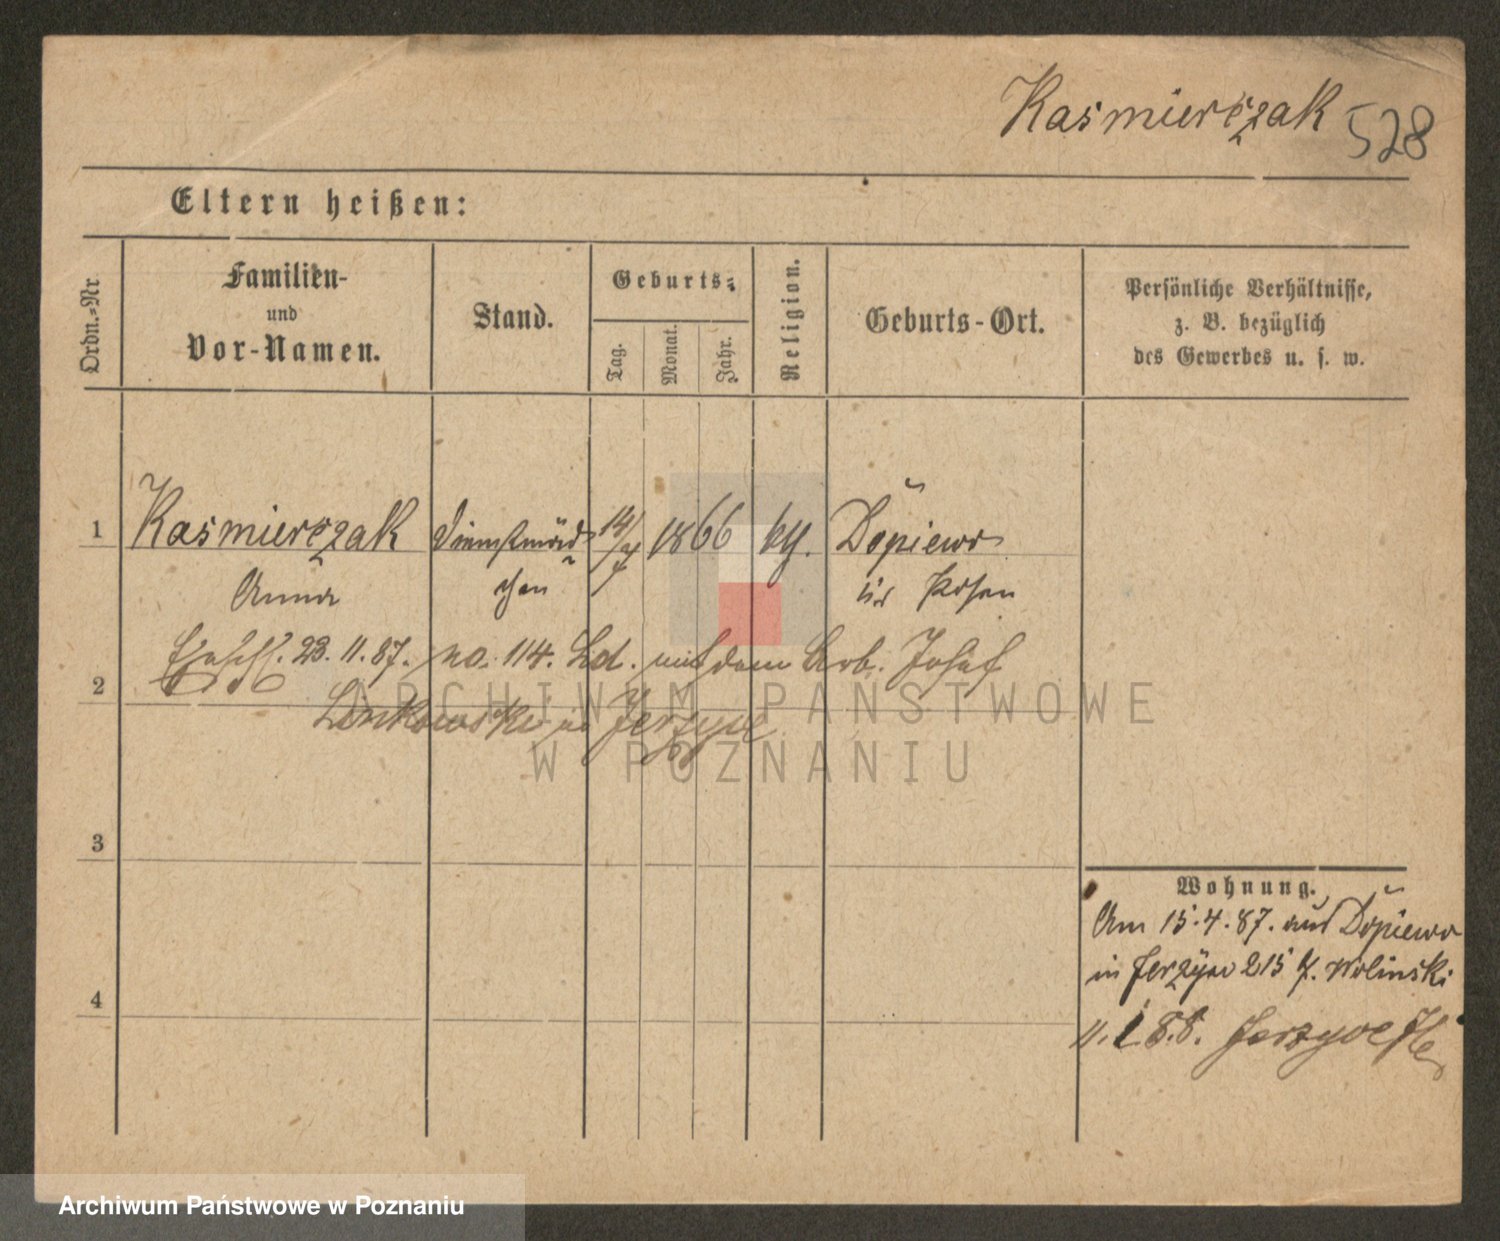 Kasmierczak 528
Eltern heißen:
Ordn.-Nr
Familien-
und
Vor-Namen.
Stand.
Geburts-
Tag.
Monat.
Jahr.
Religion.
Geburts-Ort.
Persönliche Verhältnisse,
z. B. bezüglich
des Gewerbes u. s. w.
1 Kasmierczak Dienstmäd- 14/7 1866 kth. Dopiewo
Anna chen Kr Posen
Ehesch. 23.11.87. no. 114. Ld. mit dem Arb. Josef
2
Lenkowski in Jerzyce
ARCHIWUM PAŃSTWOWE
W POZNANIU
3
Wohnung.
Am 15.4.87. aus Dopiewo
in Jerzyce 215 b/. Wolinski
4
11. 1 88. Jerzyce
Archiwum Państwowe w Poznaniu